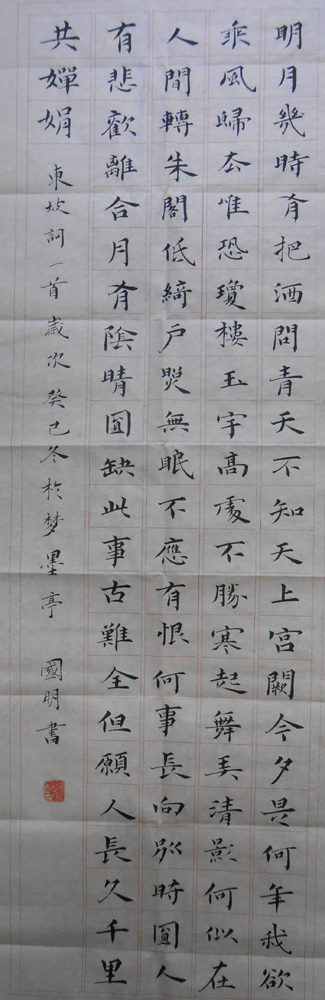 明月幾時有把酒問青天不知天上宮闕今夕是何年我欲
乘風歸去唯恐瓊樓玉宇高處不勝寒起舞弄清影何似在
人間轉朱閣低綺戶照無眠不應有恨何事長向別時圓人
有悲歡離合月有陰晴圓缺此事古難全但願人長久千里
共嬋娟
東坡詞一首歲次癸巳冬於梦墨亭 國明書